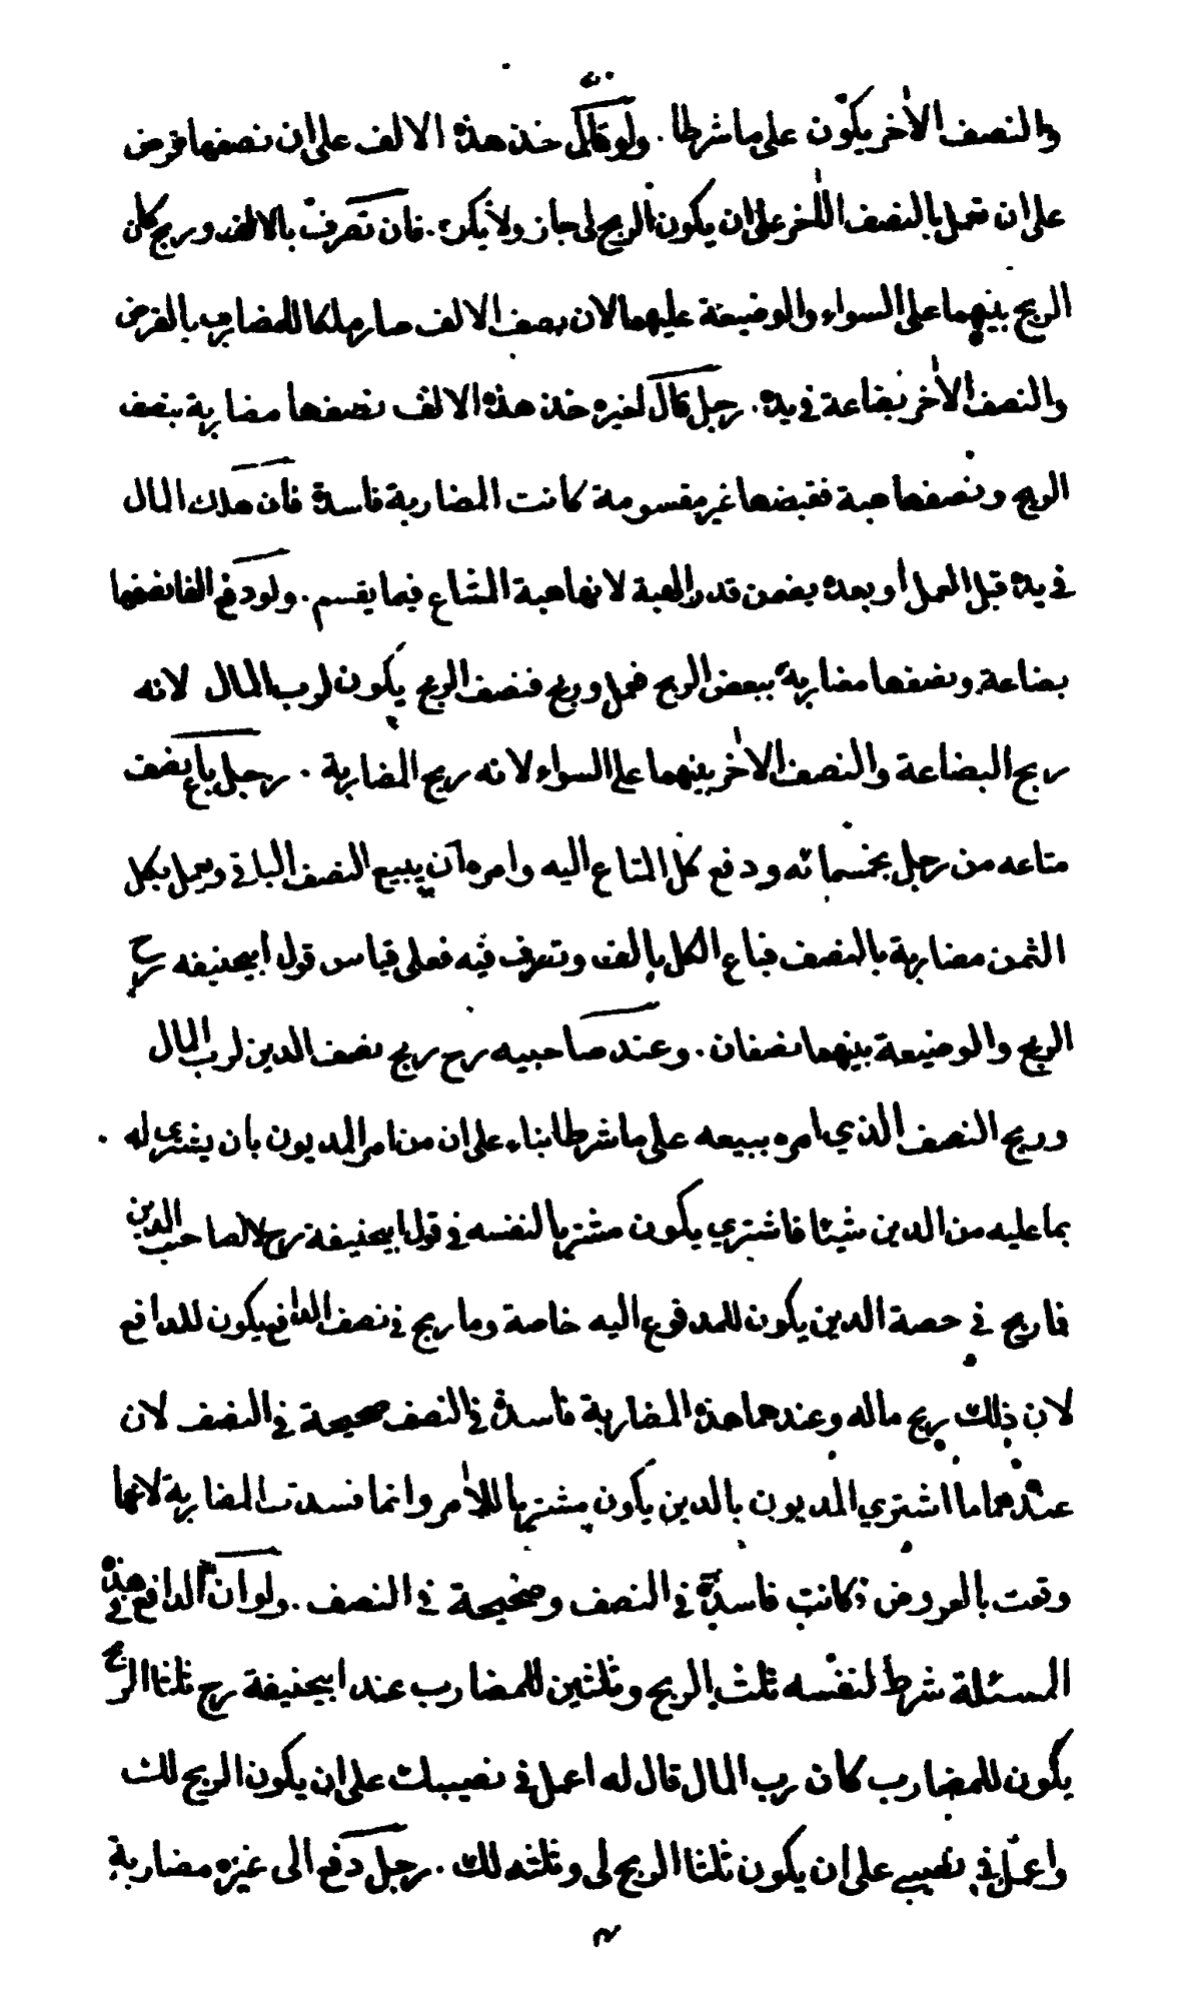 والنصف الآخر يكون على ما شرطا . ولو قال خذ هذه الالف على ان نصفها قرض
على ان تعمل بالنصف الآخر على ان يكون الربح لى جاز ولا يكره . فان تصرف بالالف وربح كان
الربح بينهما على السواء والوضيعة عليهما لان نصف الالف صار ملكا للمضارب بالقرض
والنصف الآخر بضاعة فى يده . رجل قال لغيره خذ هذه الالف نصفها مضاربة بنصف
الربح ونصفها هبة فقبضها غير مقسومة كانت المضاربة فاسدة فان هلك المال
فى يده قبل العمل او بعده يضمن قدر الهبة لانها هبة المشاع فيما يقسم . ولو دفع الفا نصفها
بضاعة ونصفها مضاربة ببعض الربح فعمل وربح فنصف الربح يكون لرب المال لانه
ربح البضاعة والنصف الآخر بينهما على السواء لانه ربح المضاربة . رجل باع نصف
متاعه من رجل بخمسمائه ودفع كل المتاع اليه وامره ان يبيع النصف الباقى ويعمل بكل
الثمن مضاربة بالنصف فباع الكل بالف وتصرف فيه فعلى قياس قول ابيحنيفه رح
الربح والوضيعة بينهما نصفان . وعند صاحبيه رح ربح نصف الدين لرب المال
وربح النصف الذي امره ببيعه على ما شرطا بناء على ان من امر المديون بان يشترى له .
بما عليه من الدين شيئا فاشتري يكون مشتريا لنفسه فى قول ابيحنيفة رح لا لصاحب الدين
فاربح فى حصة الدين يكون للمدفوع اليه خاصة وما ربح فى نصف الدافع يكون للدافع
لان ذلك ربح ماله وعندهما هذه المضاربة فاسدة فى النصف صحيحة فى النصف لان
عندهما ما اشتري المديون بالدين يكون مشتريا للآمر وانما فسدت المضاربة لانها
وقعت بالعروض فكانت فاسدة فى النصف وصحيحة فى النصف . ولو ان الدافع فى هذه
المسئلة شرط لنفسه ثلث الربح وثلثين للمضارب عند ابيحنيفة رح ثلثا الربح
يكون للمضارب كان رب المال قال له اعمل فى نصيبك على ان يكون الربح لك
واعمل فى نصيبى على ان يكون ثلثا الربح لى وثلثه لك . رجل دفع الى غيره مضاربة